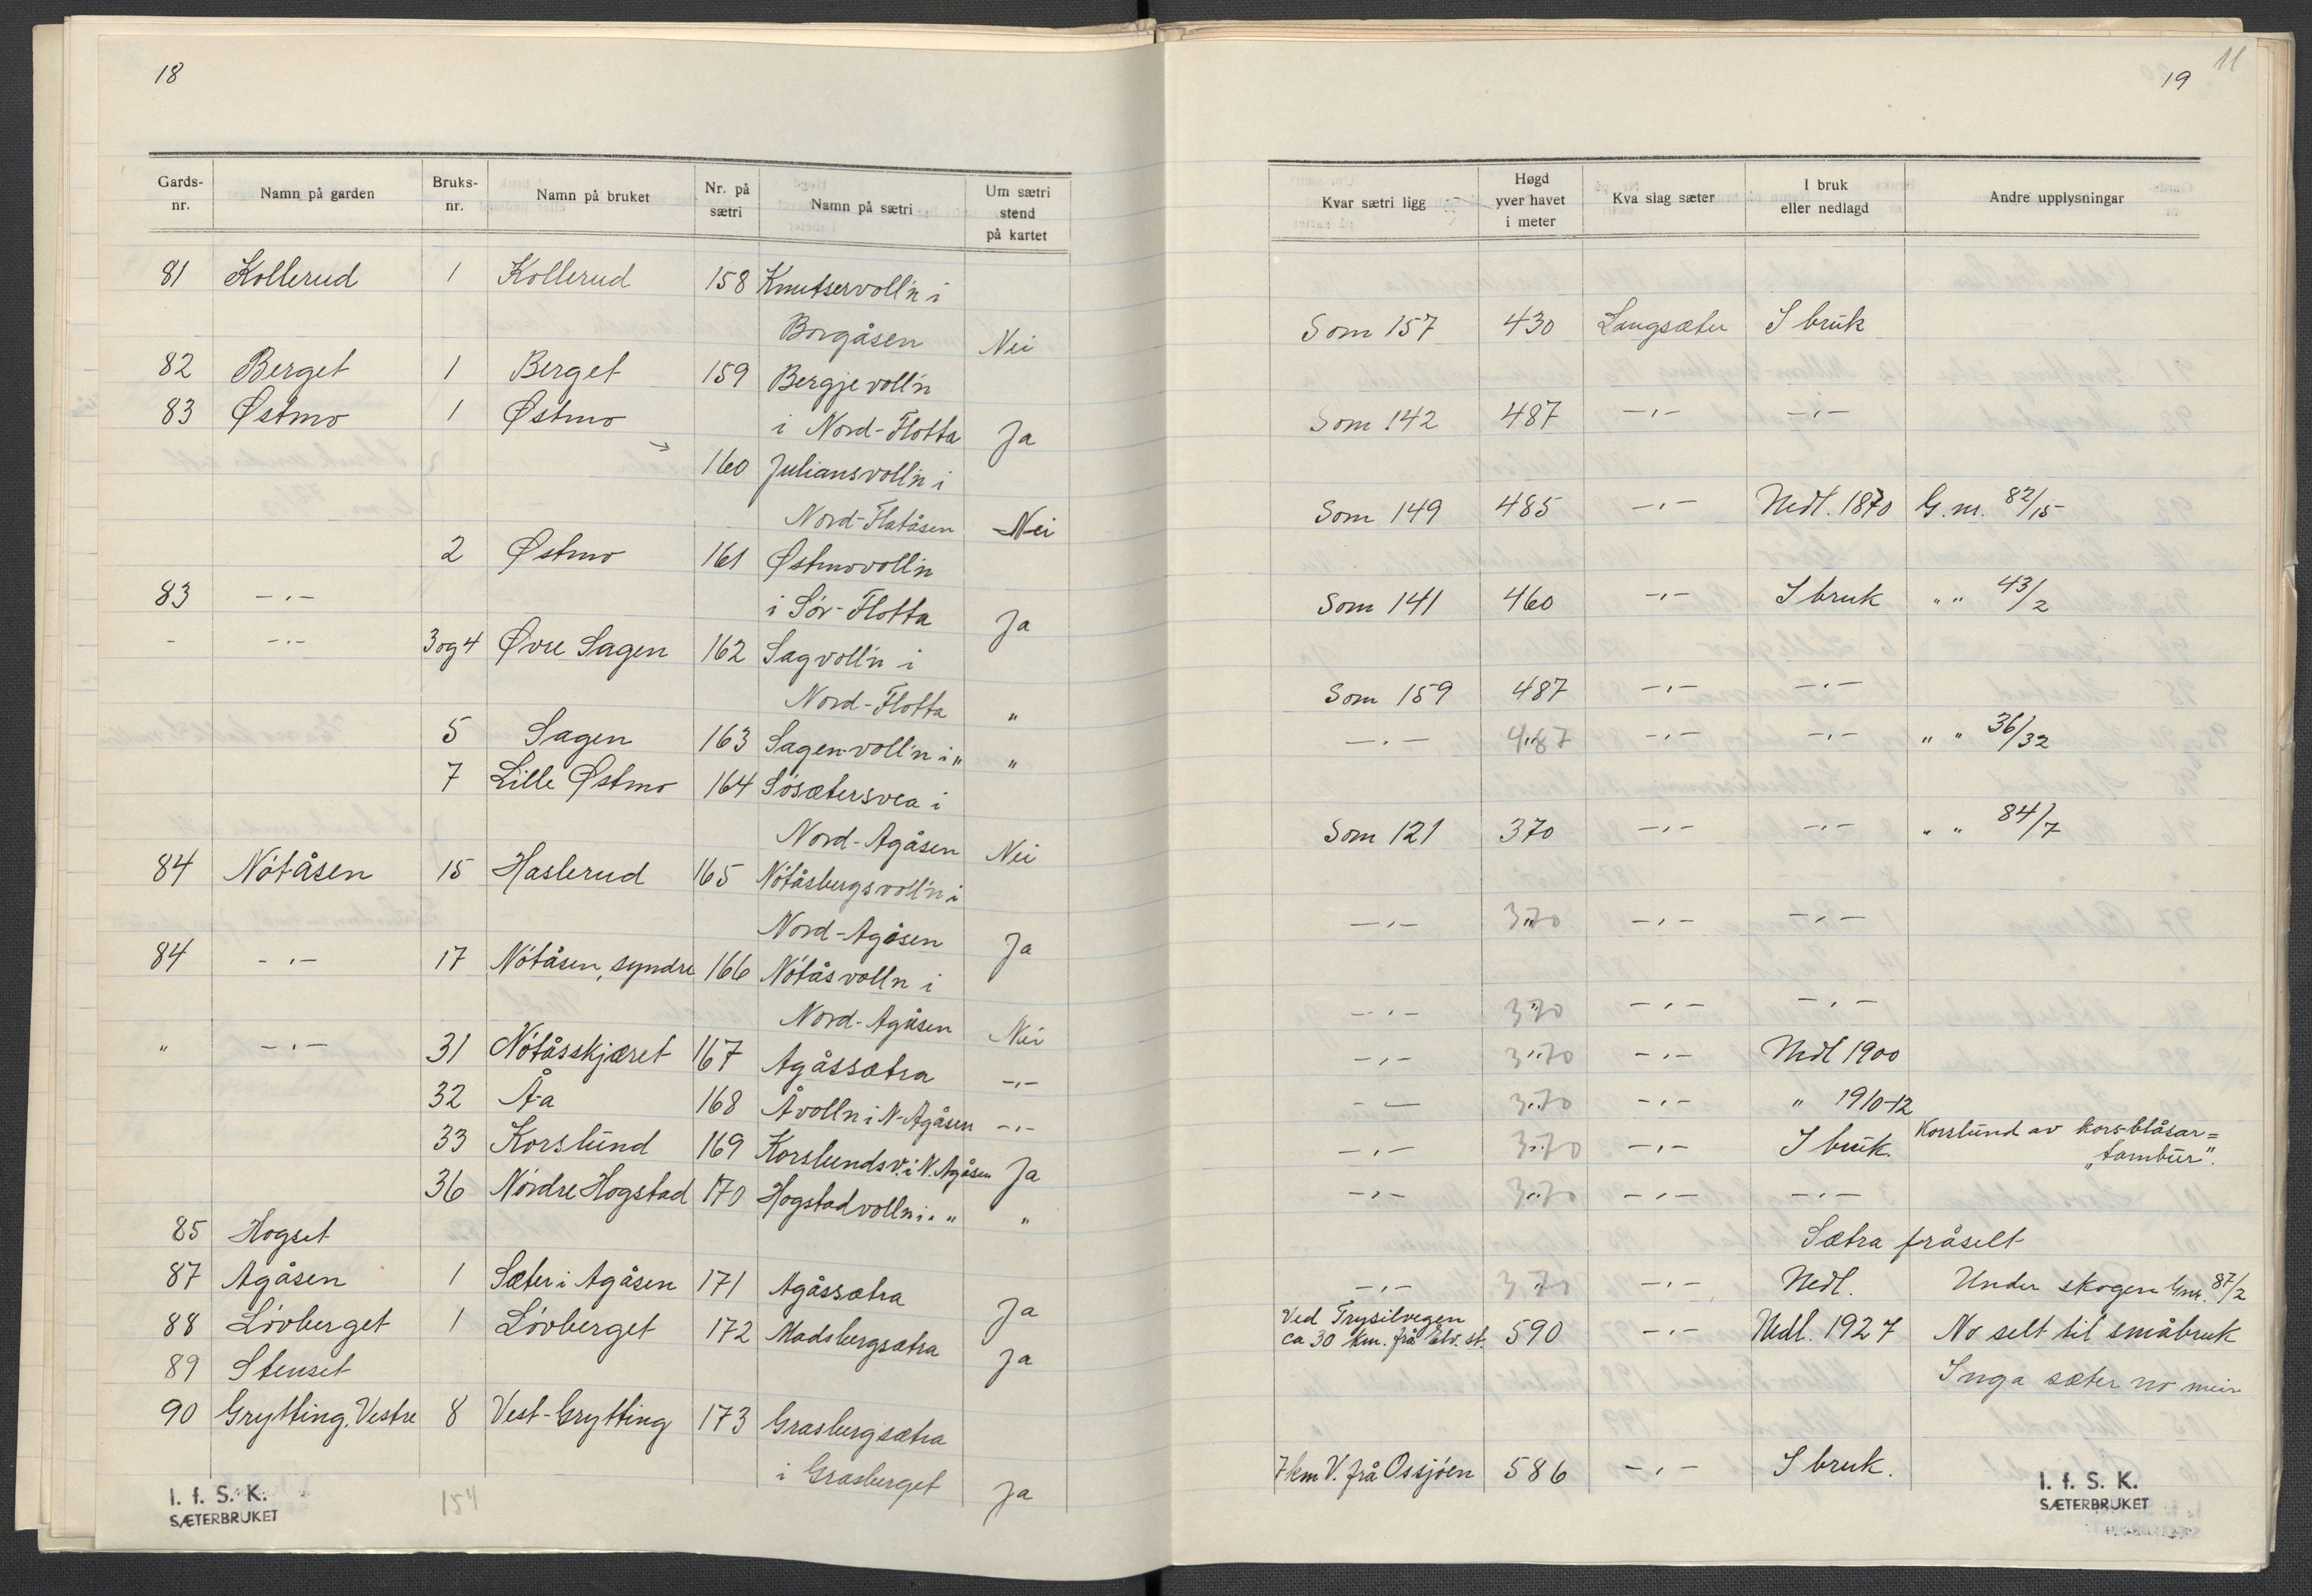 18
Gards-nr. Namn på garden Bruks-nr. Namn på bruket Nr. på sætri Namn på sætri Um sætri stend på kartet
81 Kollerud 1 Kollerud 158 Knutservoll'n i
Borgåsen Nei
82 Berget 1 Berget 159 Bergjevoll'n
83 Østmo 1 Østmo i Nord-Flotta Ja
160 Juliansvoll'n i
Nord-Flatåsen Nei
2 Østmo 161 Østmovoll'n
83 -"- i Sør-Flotta Ja
- -"- 3 og 4 Øvre Sagen 162 Sagvoll'n i
Nord-Flotta "
5 Sagen 163 Sagen-voll'n i " "
7 Lille Østmo 164 Søsætersvea i
Nord-Agåsen Nei
84 Nøtåsen 15 Haslerud 165 Nøtåsbergsvoll'n i
Nord-Agåsen Ja
84 -"- 17 Nøtåsen, syndre 166 Nøtåsvolln i
Nord-Agåsen Nei
" -"- 31 Nøtåsskjæret 167 Agåssætra -"-
32 Åa 168 Åvoll'n i N-Agåsen -"-
33 Korslund 169 Korslundsv. i N. Agåsen Ja
36 Nordre Hogstad 170 Hogstadvolln i " "
85 Hogset
87 Agåsen 1 Sæter i Agåsen 171 Agåssætra Ja
88 Løvberget 1 Løvberget 172 Madsbergsætra Ja
89 Stenset
90 Grytting, Vestre 8 Vest-Grytting 173 Grasbergsætra
i Grasberget Ja
I. f. S. K.
SÆTERBRUKET
154
11
19
Kvar sætri ligg Høgd yver havet i meter Kva slag sæter I bruk eller nedlagd Andre upplysningar
Som 157 430 Langsæter I bruk
Som 142 487 -"- -"-
Som 149 485 -"- Nedl. 1870 G. nr. 82/15
Som 141 460 -"- I bruk " " 43/2
Som 159 487 -"- -"-
-"- 487 -"- -"- " " 36/32
Som 121 370 -"- -"- " " 84/7
-"- 370 -"- -"-
-"- 370 -"- -"-
-"- 370 -"- Nedl 1900
-"- 370 -"- " 1910-12
-"- 370 -"- I bruk. Korslund av kors-blåsar=
"tambur".
-"- 370 -"- -"-
Sætra fråselt
-"- 370 -"- Nedl. Under skogen Gnr. 87/2
Ved Trysilvegen
ca 30 km. frå Elv. st. 590 -"- Nedl. 1927 No selt til småbruk
Inga sæter no meir
7 km V. frå Ossjøen 586 -"- I bruk.
I. f. S. K.
SÆTERBRUKET